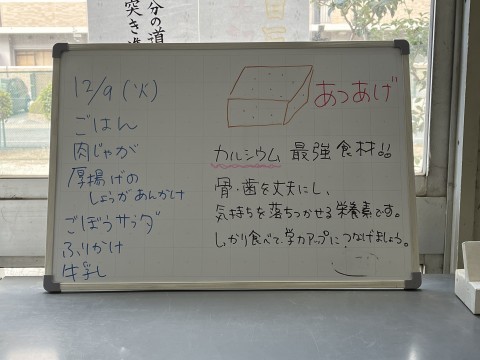 分の道
突き進
12/9(火)
ごはん
肉じゃが
厚揚げの
しょうがあんかけ
ごぼうサラダ
ふりかけ
牛乳
あつあげ
カルシウム 最強食材!!
骨・歯を丈夫にし、
気持ちを落ちつかせる栄養素です。
しっかり食べて、学力アップにつなげましょう。